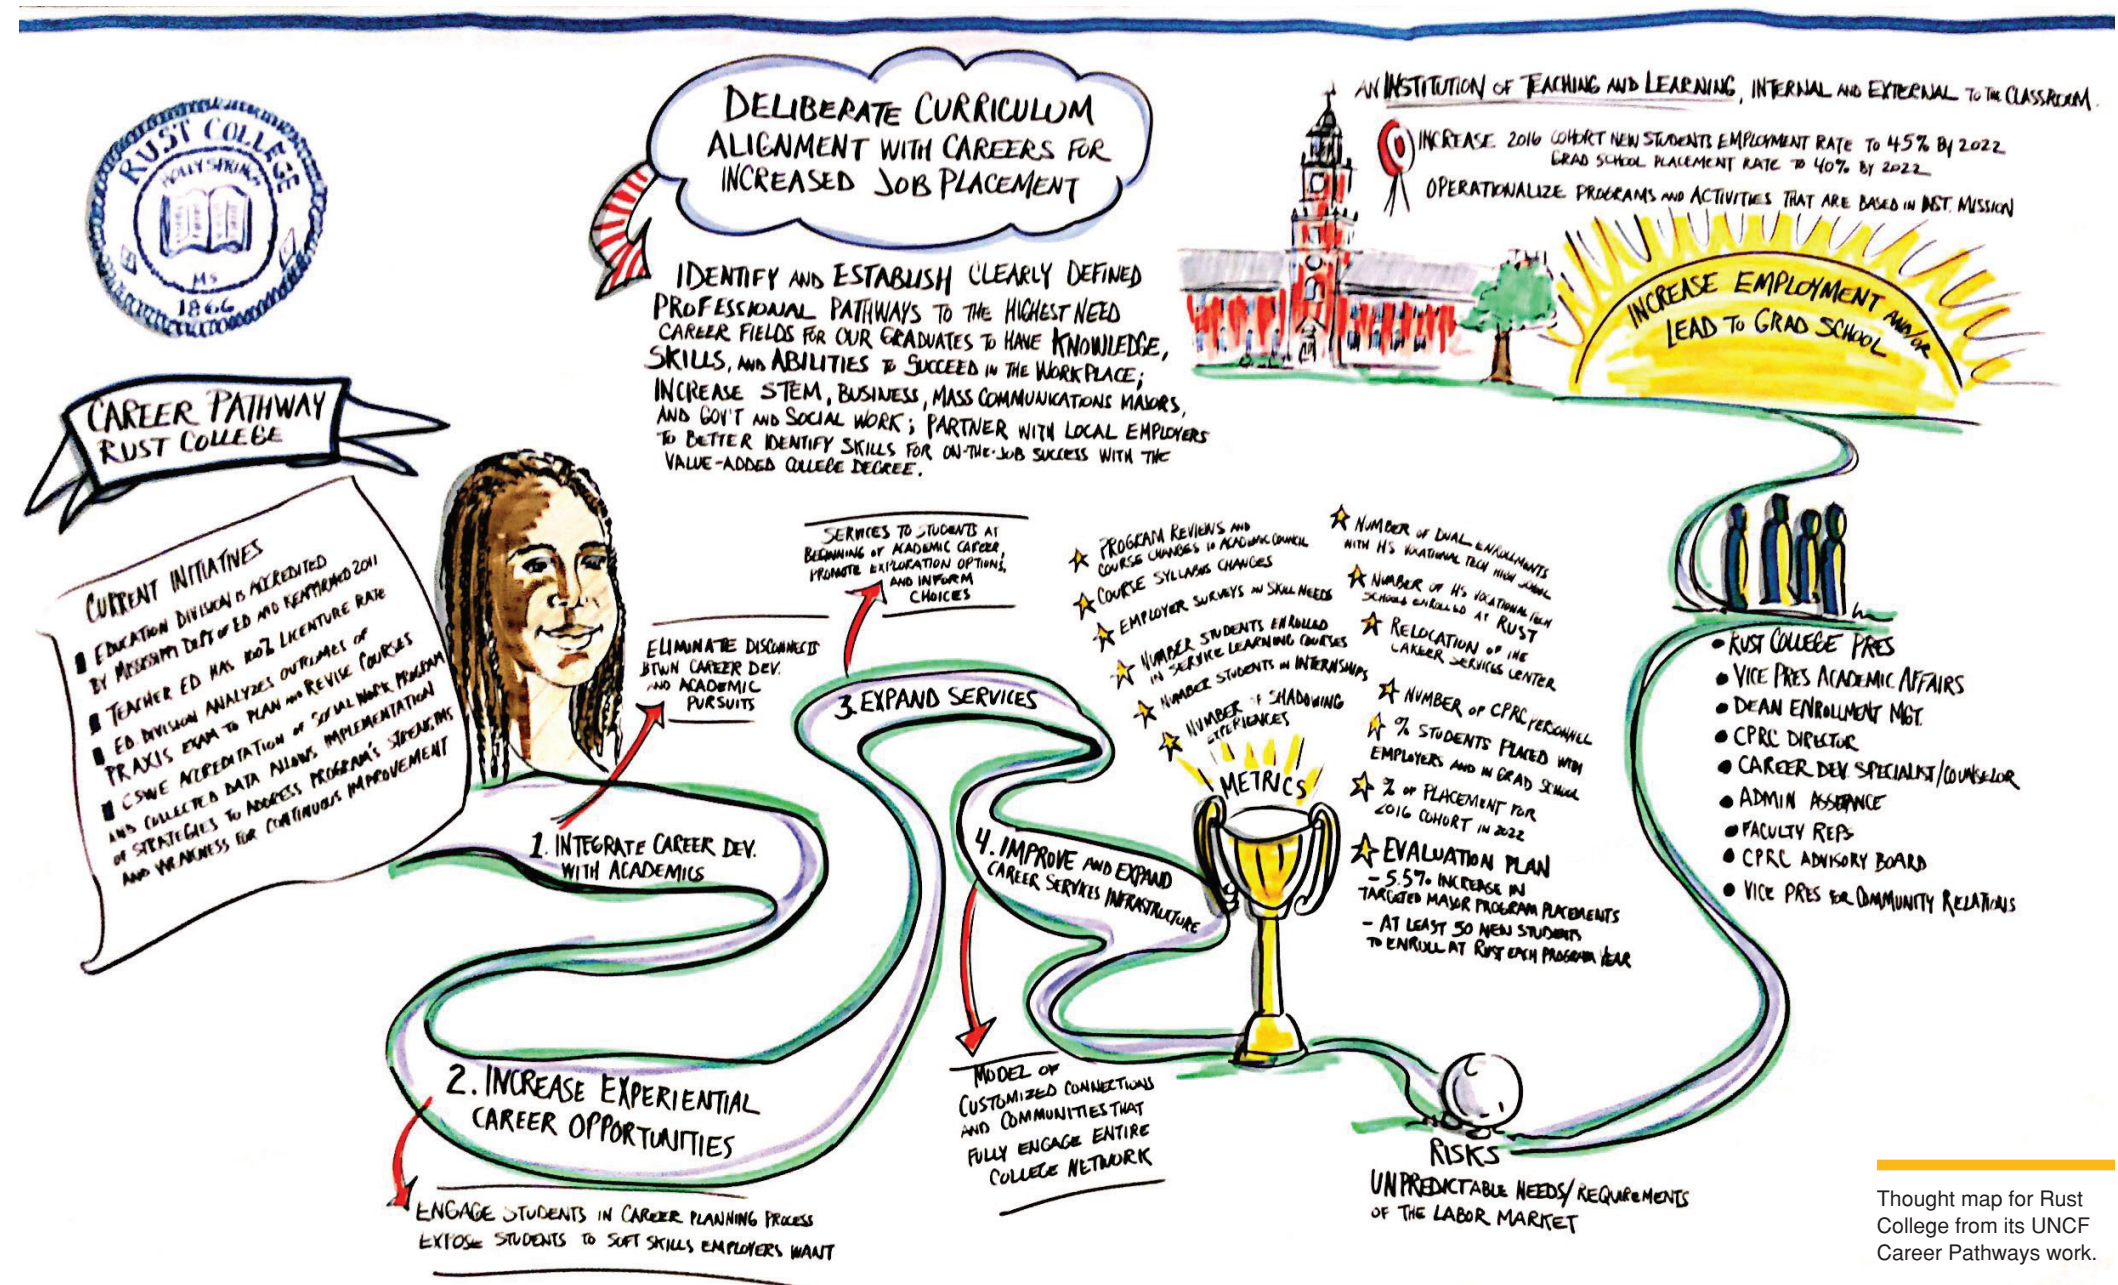 RUST COLLEGE
HOLLY SPRINGS
MS
1866
CAREER PATHWAY
RUST COLLEGE
CURRENT INITIATIVES
EDUCATION DIVISION IS ACCREDITED
BY MISSISSIPPI DEPT OF ED AND REAFFIRMED 2011
TEACHER ED HAS 100% LICENTURE RATE
ED. DIVISION ANALYZES OUTCOMES OF
PRAXIS EXAM TO PLAN AND REVISE COURSES
CSWE ACCREDITATION OF SOCIAL WORK PROGRAM
AND COLLECTED DATA ALLOWS IMPLEMENTATION
OF STRATEGIES TO ADDRESS PROGRAM'S STRENGTHS
AND WEAKNESS FOR CONTINUOUS IMPROVEMENT
DELIBERATE CURRICULUM
ALIGNMENT WITH CAREERS FOR
INCREASED JOB PLACEMENT
IDENTIFY AND ESTABLISH CLEARLY DEFINED
PROFESSIONAL PATHWAYS TO THE HIGHEST NEED
CAREER FIELDS FOR OUR GRADUATES TO HAVE KNOWLEDGE,
SKILLS, AND ABILITIES TO SUCCEED IN THE WORKPLACE;
INCREASE STEM, BUSINESS, MASS COMMUNICATIONS MAJORS,
AND GOV'T AND SOCIAL WORK; PARTNER WITH LOCAL EMPLOYERS
TO BETTER IDENTIFY SKILLS FOR ON-THE-JOB SUCCESS WITH THE
VALUE-ADDED COLLEGE DEGREE.
AN INSTITUTION OF TEACHING AND LEARNING, INTERNAL AND EXTERNAL TO THE CLASSROOM.
INCREASE 2016 COHORT NEW STUDENTS EMPLOYMENT RATE TO 45% BY 2022
GRAD SCHOOL PLACEMENT RATE TO 40% BY 2022
OPERATIONALIZE PROGRAMS AND ACTIVITIES THAT ARE BASED IN INST. MISSION
INCREASE EMPLOYMENT AND/OR
LEAD TO GRAD SCHOOL
1. INTEGRATE CAREER DEV.
WITH ACADEMICS
ELIMINATE DISCONNECTS
BTWN CAREER DEV.
AND ACADEMIC
PURSUITS
2. INCREASE EXPERIENTIAL
CAREER OPPORTUNITIES
ENGAGE STUDENTS IN CAREER PLANNING PROCESS
EXPOSE STUDENTS TO SOFT SKILLS EMPLOYERS WANT
3. EXPAND SERVICES
SERVICES TO STUDENTS AT
BEGINNING OF ACADEMIC CAREER,
PROMOTE EXPLORATION OPTIONS,
AND INFORM
CHOICES
4. IMPROVE AND EXPAND
CAREER SERVICES INFRASTRUCTURE
MODEL OF
CUSTOMIZED CONNECTIONS
AND COMMUNITIES THAT
FULLY ENGAGE ENTIRE
COLLEGE NETWORK
METRICS
PROGRAM REVIEWS AND
COURSE CHANGES TO ACADEMIC COUNCIL
COURSE SYLLABUS CHANGES
EMPLOYER SURVEYS ON SKILL NEEDS
NUMBER STUDENTS ENROLLED
IN SERVICE LEARNING COURSES
NUMBER STUDENTS IN INTERNSHIPS
NUMBER OF SHADOWING
EXPERIENCES
NUMBER OF DUAL ENROLLMENTS
WITH HS VOCATIONAL TECH HIGH SCHOOL
NUMBER OF HS VOCATIONAL TECH
SCHOOLS ENROLLED AT RUST
RELOCATION OF THE
CAREER SERVICES CENTER
NUMBER OF CPRC PERSONNEL
% STUDENTS PLACED WITH
EMPLOYERS AND IN GRAD SCHOOL
% OF PLACEMENT FOR
2016 COHORT IN 2022
EVALUATION PLAN
- 5.5% INCREASE IN
TARGETED MAJOR PROGRAM PLACEMENTS
- AT LEAST 50 NEW STUDENTS
TO ENROLL AT RUST EACH PROGRAM YEAR
RISKS
UNPREDICTABLE NEEDS/REQUIREMENTS
OF THE LABOR MARKET
• RUST COLLEGE PRES
• VICE PRES ACADEMIC AFFAIRS
• DEAN ENROLLMENT MGT.
• CPRC DIRECTOR
• CAREER DEV. SPECIALIST/COUNSELOR
• ADMIN ASSISTANCE
• FACULTY REPS
• CPRC ADVISORY BOARD
• VICE PRES FOR COMMUNITY RELATIONS
Thought map for Rust
College from its UNCF
Career Pathways work.